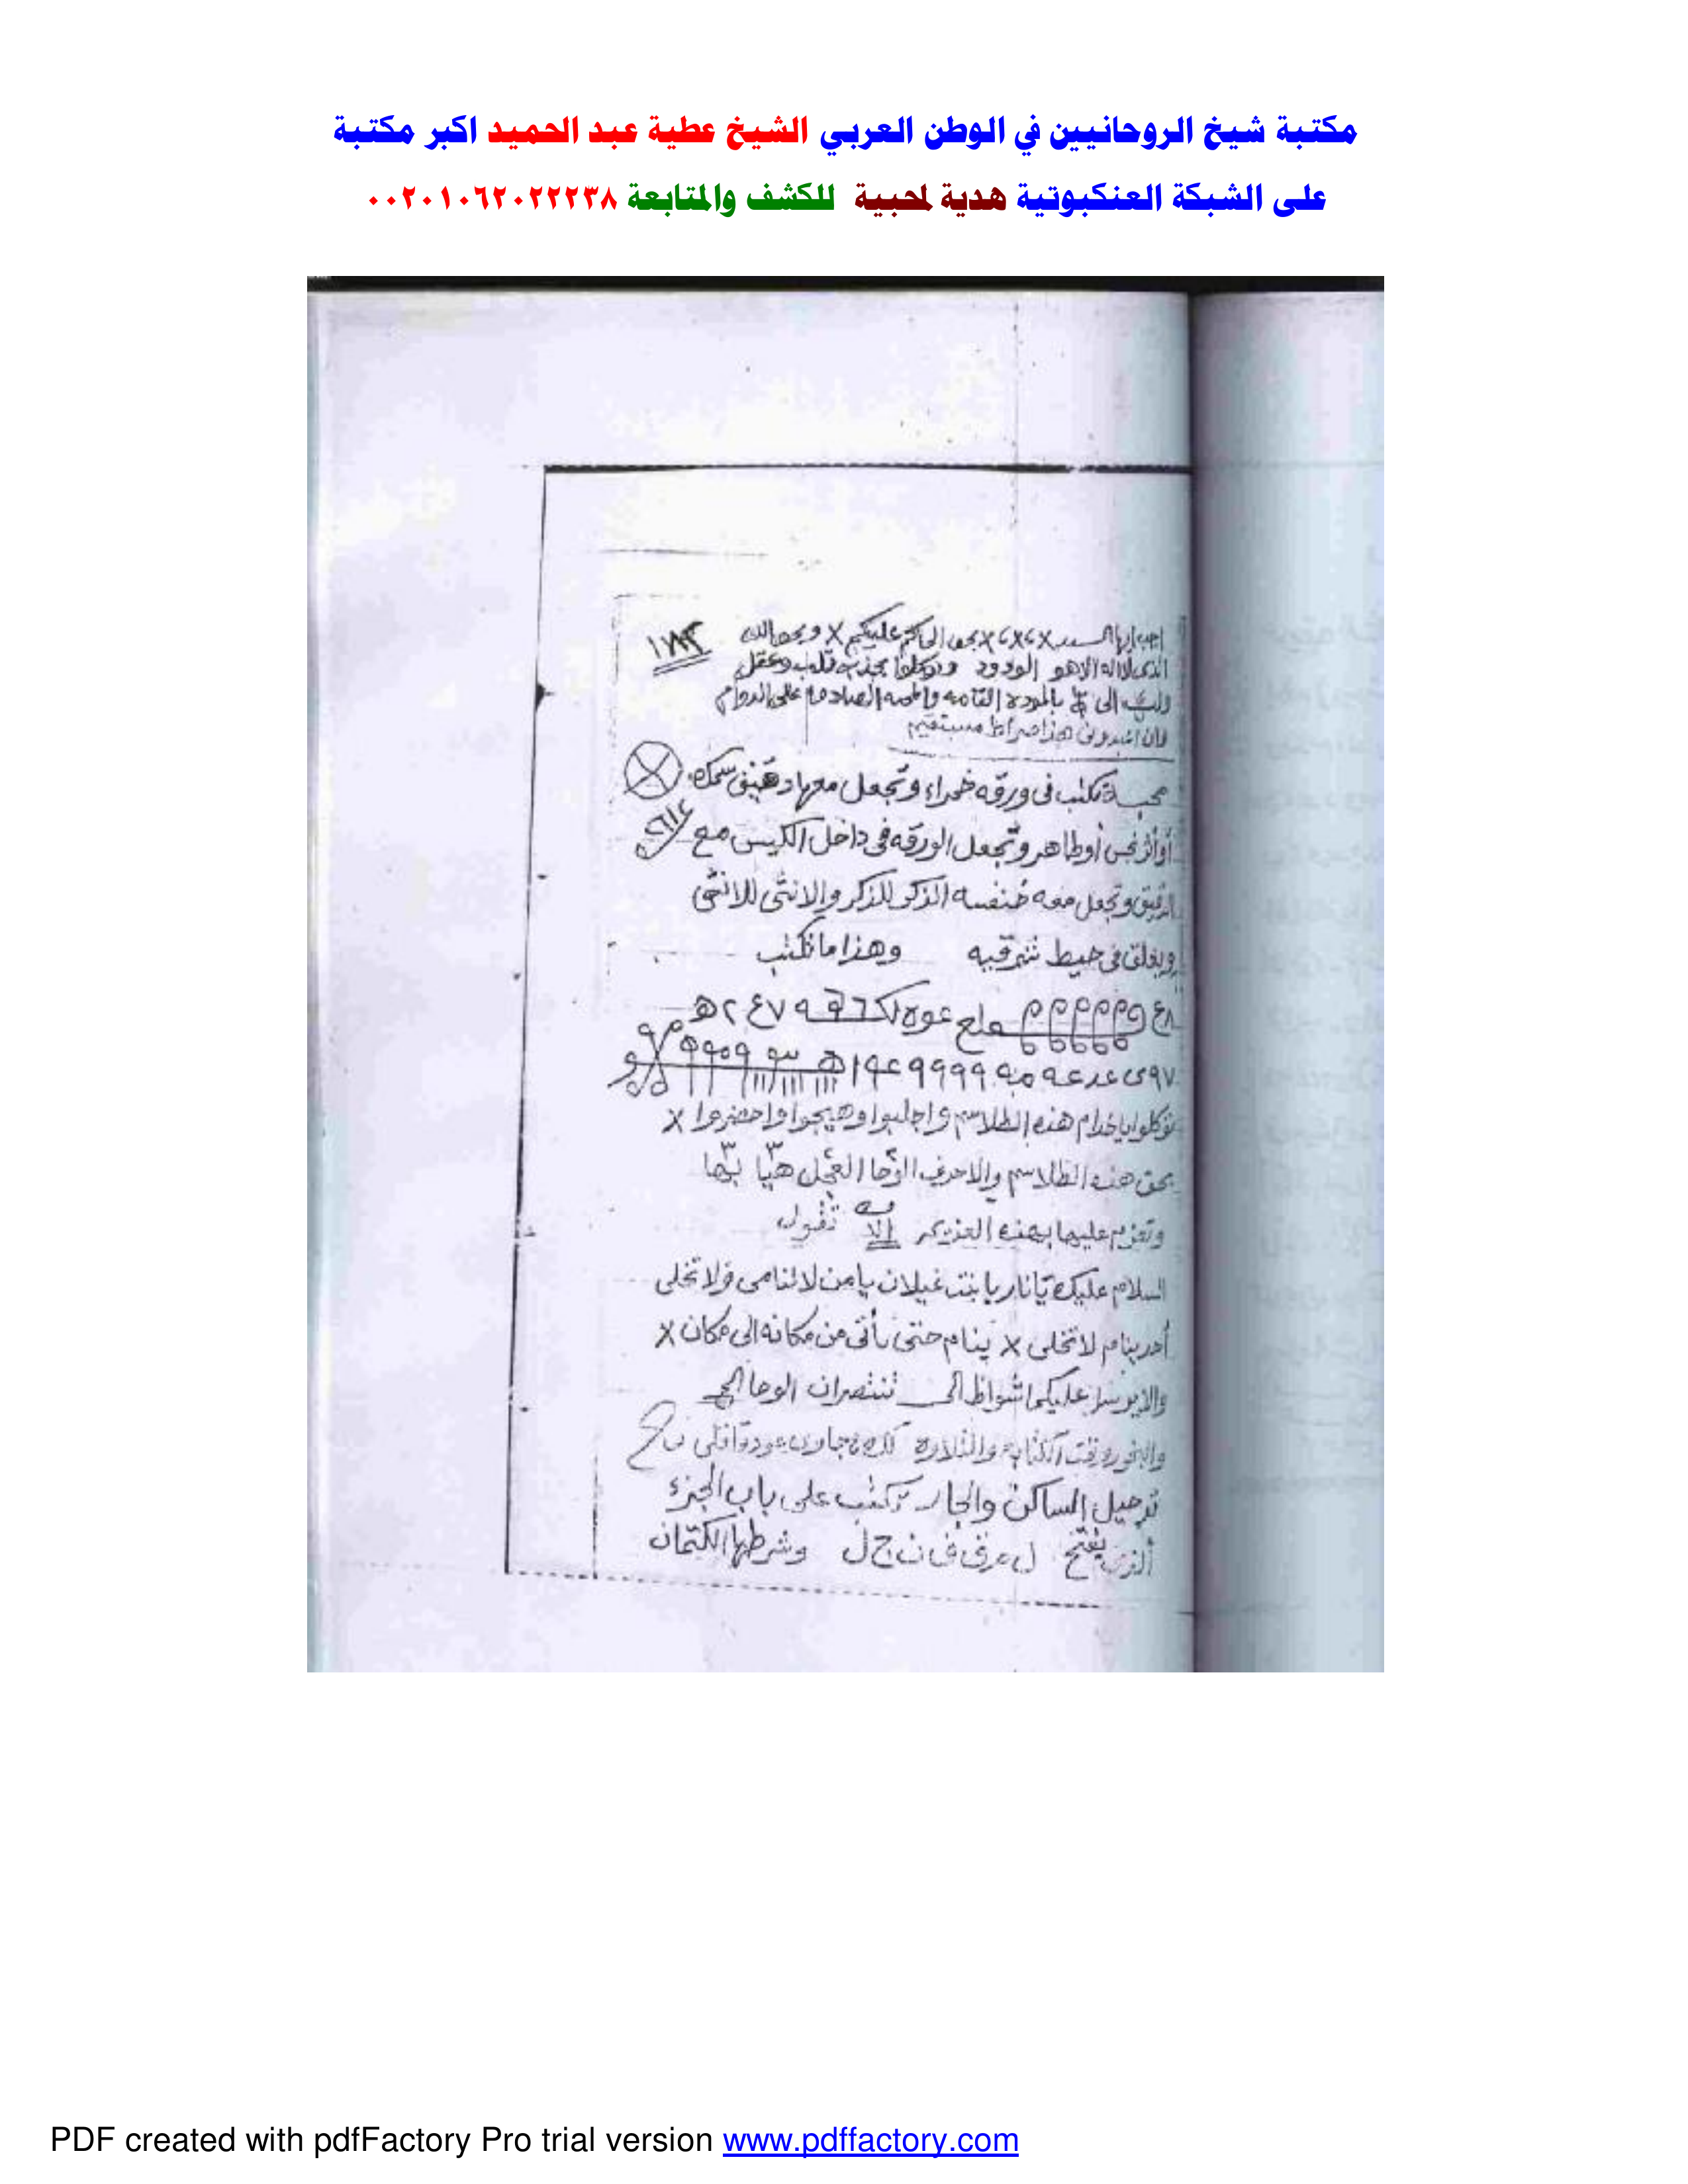 مكتبة شيخ الروحانيين في الوطن العربي الشيخ عطية عبد الحميد اكبر مكتبة
على الشبكة العنكبوتية هدية لمحبية للكشف والمتابعة ٠٠٢٠١٠٦٢٠٢٢٢٣٨
بحق الحاكم عليكم x وبحق الله
الذى لا اله الا هو الودود وتوكلوا بجذب قلب وعقل
الى بالمودة التامه والمحبه الصادقة على الدوام
وان اعبدونى هذا صراط مستقيم
محبة تكتب فى ورقه خمراء وتجعل معها دقيق سمك
أو أثر نجس أو طاهر وتجعل الورقه فى داخل الكيس مع
الدقيق وتجعل معه خنفسه الذكر للذكر والانثى للانثى
ويعلق فى حيط شرقيه وهذا ما تكتب
توكلوا يا خدام هذه الطلاسم واجلبوا وهيجوا واحضروا x
بحق هذه الطلاسم والاحرف الوحا العجل هيا
وتعزم عليها بهذه العزيمه تقول
السلام عليك يا نار يا بنت غيلان يا من لا تنامى ولا تخلى
أحد ينام لا تخلى x ينام حتى يأتى من مكانه الى مكان x
والا يرسل عليكما شواظ الى تنتصران الوحا
والبخور وقت الكتابه والتلاوه جاوى عود
ترحيل الساكن والجار تكتب على باب الجزء
الذى يفتح ن ج ل وشرطها الكتمان
PDF created with pdfFactory Pro trial version www.pdffactory.com